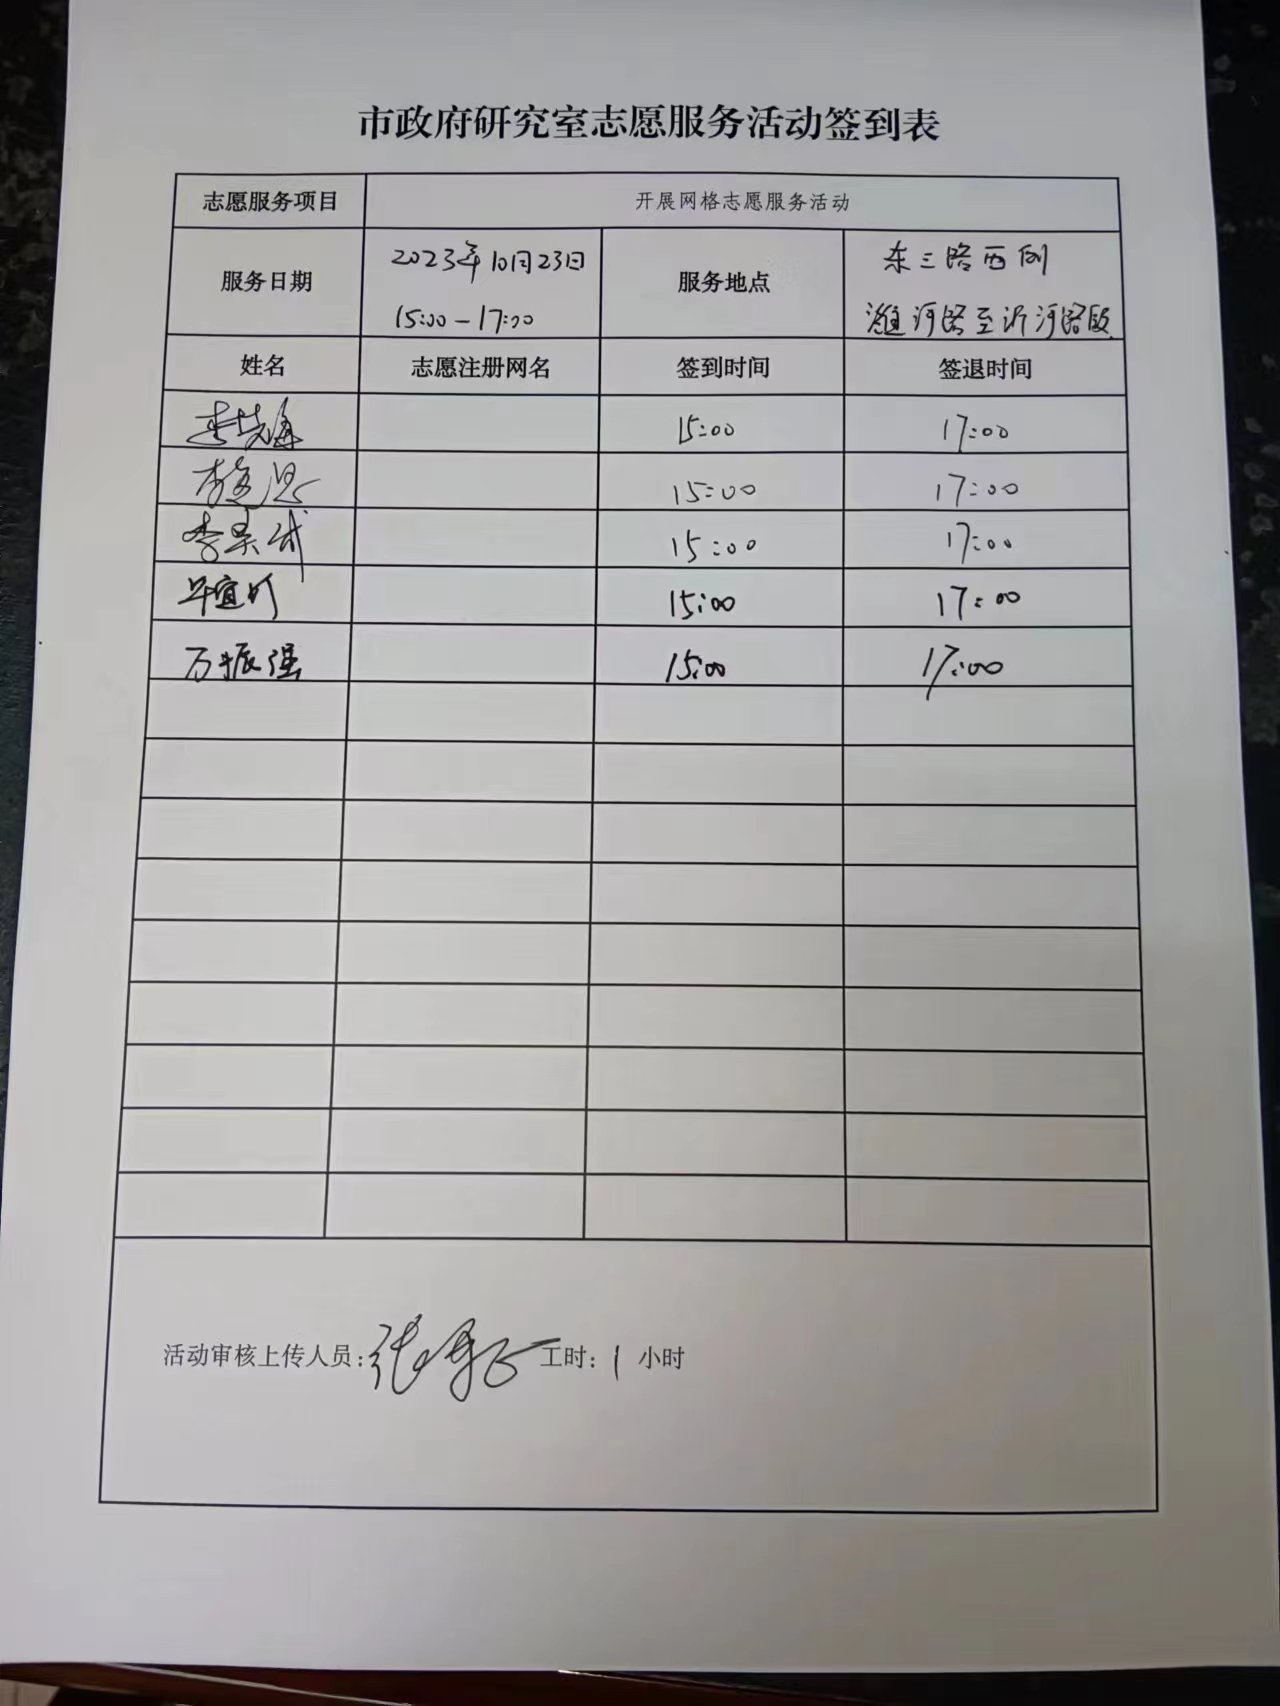 市政府研究室志愿服务活动签到表
志愿服务项目 开展网格志愿服务活动
服务日期 2023年10月23日 15:00-17:00 服务地点 东三路西侧 潍河路至沂河路段
姓名 志愿注册网名 签到时间 签退时间
15:00 17:00
15:00 17:00
李昊 15:00 17:00
15:00 17:00
万振强 15:00 17:00
活动审核上传人员: 张 工时: 1 小时